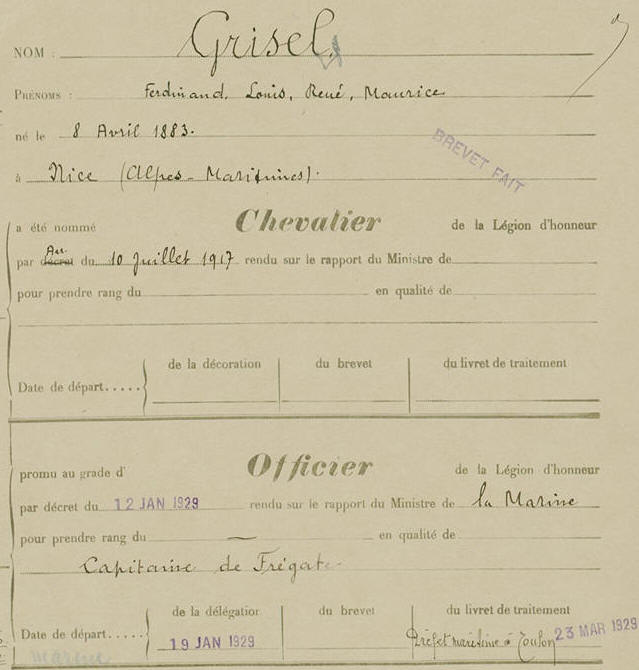 NOM : Grisel
PRÉNOMS : Ferdinand, Louis, René, Maurice
né le 8 Avril 1883.
à Nice (Alpes-Maritimes).
BREVET FAIT
a été nommé Chevalier de la Légion d'honneur
par décret Arr. du 10 Juillet 1917 rendu sur le rapport du Ministre de
pour prendre rang du en qualité de
de la décoration du brevet du livret de traitement
Date de départ.....
promu au grade d' Officier de la Légion d'honneur
par décret du 12 JAN 1929 rendu sur le rapport du Ministre de la Marine
pour prendre rang du — en qualité de
Capitaine de Frégate
de la délégation du brevet du livret de traitement
Date de départ..... 19 JAN 1929 Préfet maritime à Toulon 23 MAR 1929
Marine